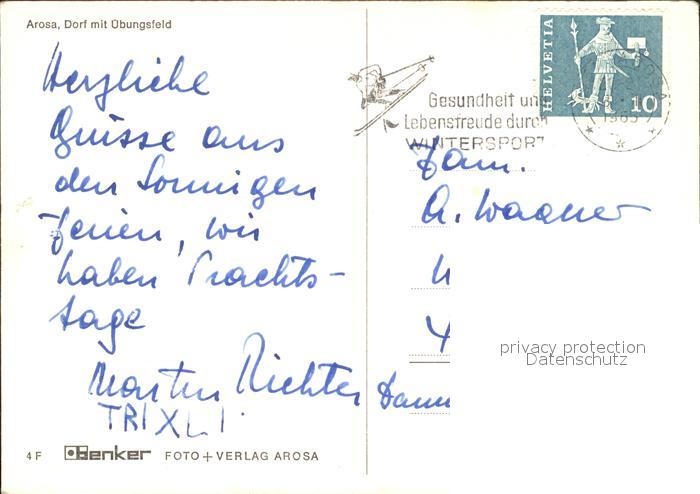 Arosa, Dorf mit Übungsfeld
Herzliche
Grüsse aus
den Sonnigen
Ferien, wir
haben Prachts-
tage
Martin Richter
TRIXLI
4 F Benker FOTO + VERLAG AROSA
HELVETIA
10
Gesundheit und
Lebensfreude durch
WINTERSPORT
1965
Fam.
A. Wagner
privacy protection
Datenschutz